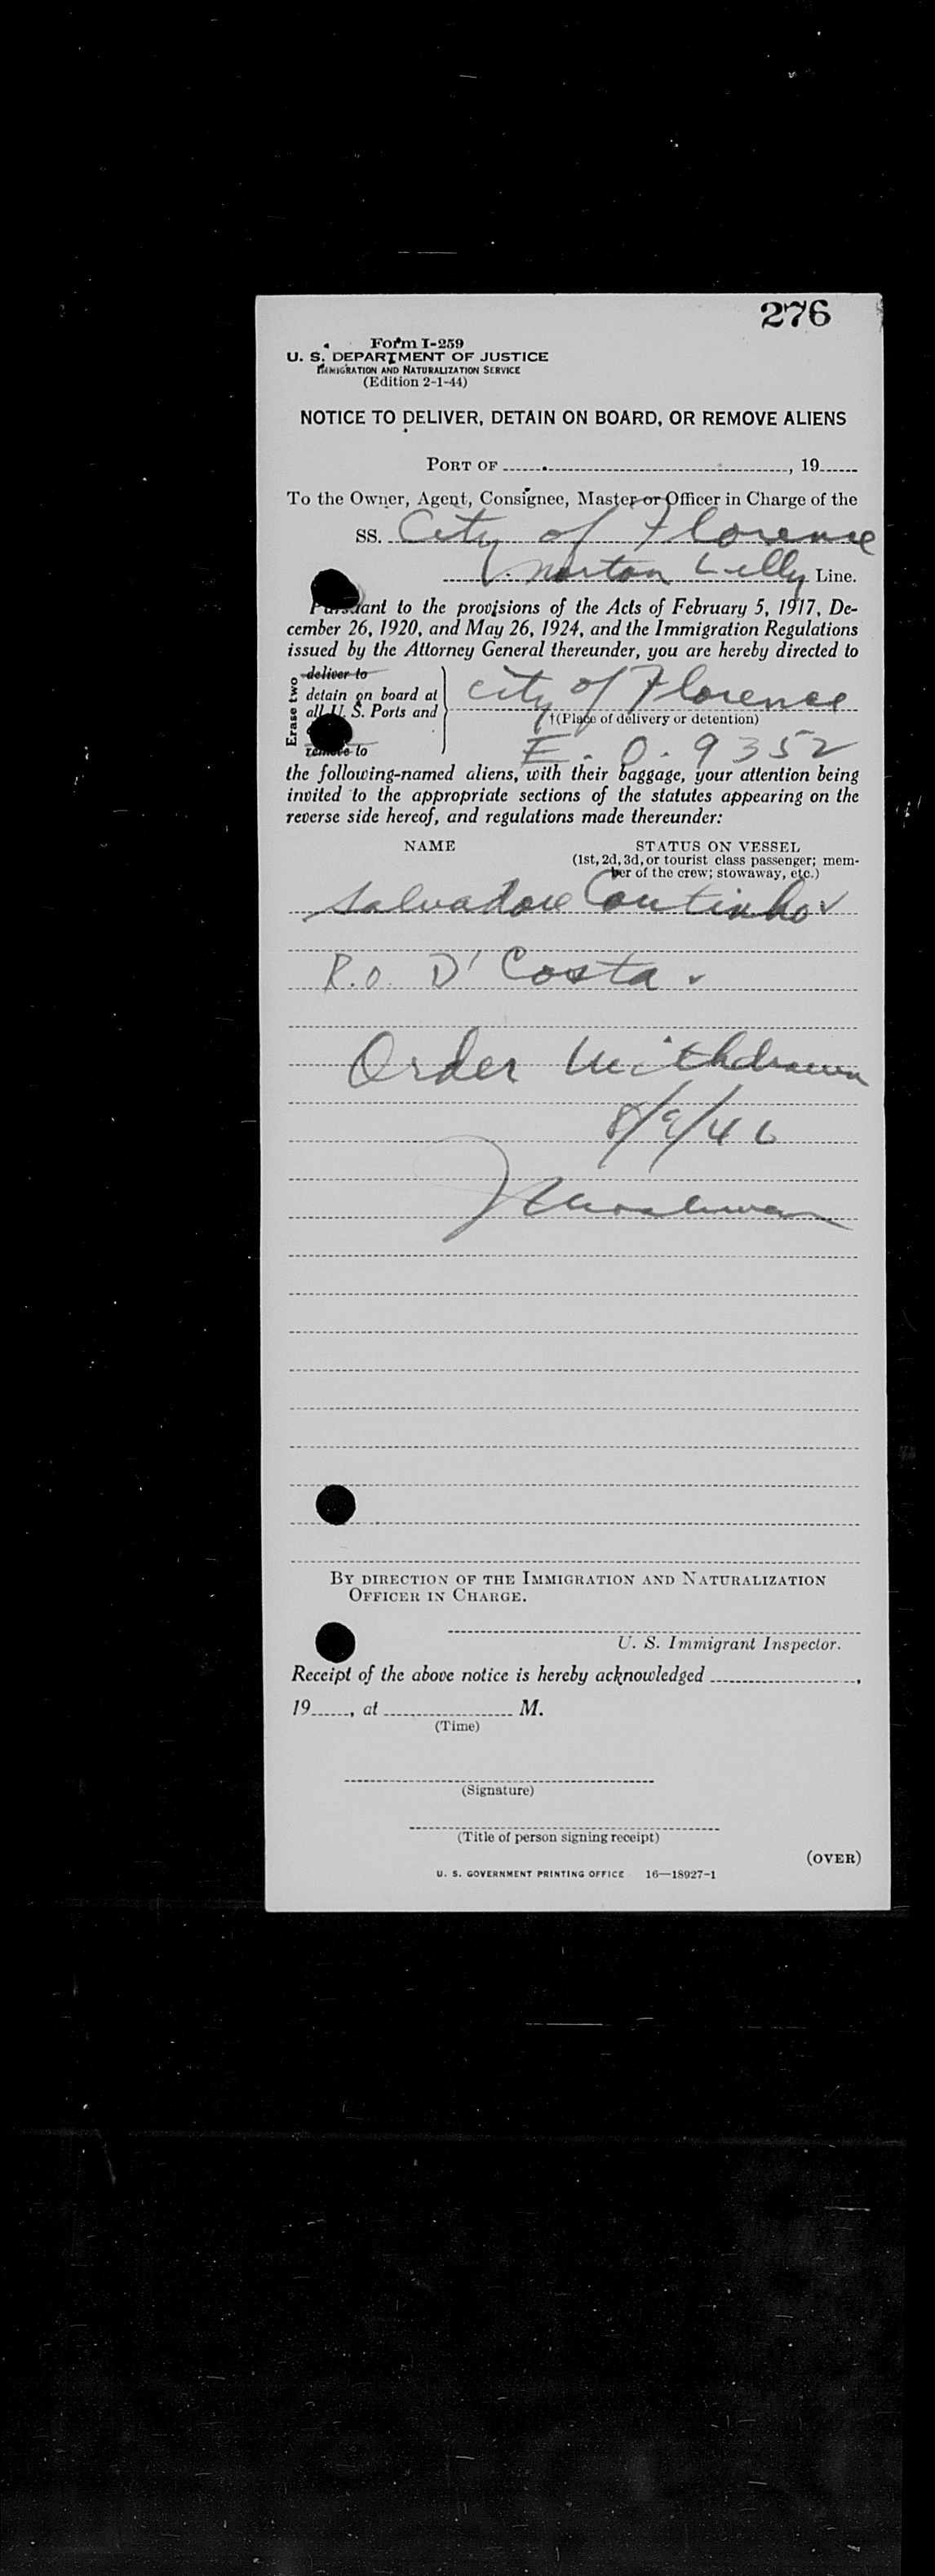 276
Form I-259
U. S. DEPARTMENT OF JUSTICE
IMMIGRATION AND NATURALIZATION SERVICE
(Edition 2-1-44)
NOTICE TO DELIVER, DETAIN ON BOARD, OR REMOVE ALIENS
PORT OF ..............................., 19......
To the Owner, Agent, Consignee, Master or Officer in Charge of the
SS. City of Florence
Norton Lilly Line.
Pursuant to the provisions of the Acts of February 5, 1917, De-
cember 26, 1920, and May 26, 1924, and the Immigration Regulations
issued by the Attorney General thereunder, you are hereby directed to
Erase two
deliver to
detain on board at
all U. S. Ports and
remove to
city of Florence
†(Place of delivery or detention)
E. O. 9352
the following-named aliens, with their baggage, your attention being
invited to the appropriate sections of the statutes appearing on the
reverse side hereof, and regulations made thereunder:
NAME
STATUS ON VESSEL
(1st, 2d, 3d, or tourist class passenger; mem-
ber of the crew; stowaway, etc.)
Salvadore Coutinho ✓
R.O. D'Costa ✓
Order Withdrawn
8/9/46
BY DIRECTION OF THE IMMIGRATION AND NATURALIZATION
OFFICER IN CHARGE.
U. S. Immigrant Inspector.
Receipt of the above notice is hereby acknowledged ....................,
19......, at .................... M.
(Time)
(Signature)
(Title of person signing receipt)
(OVER)
U. S. GOVERNMENT PRINTING OFFICE 16—18927-1